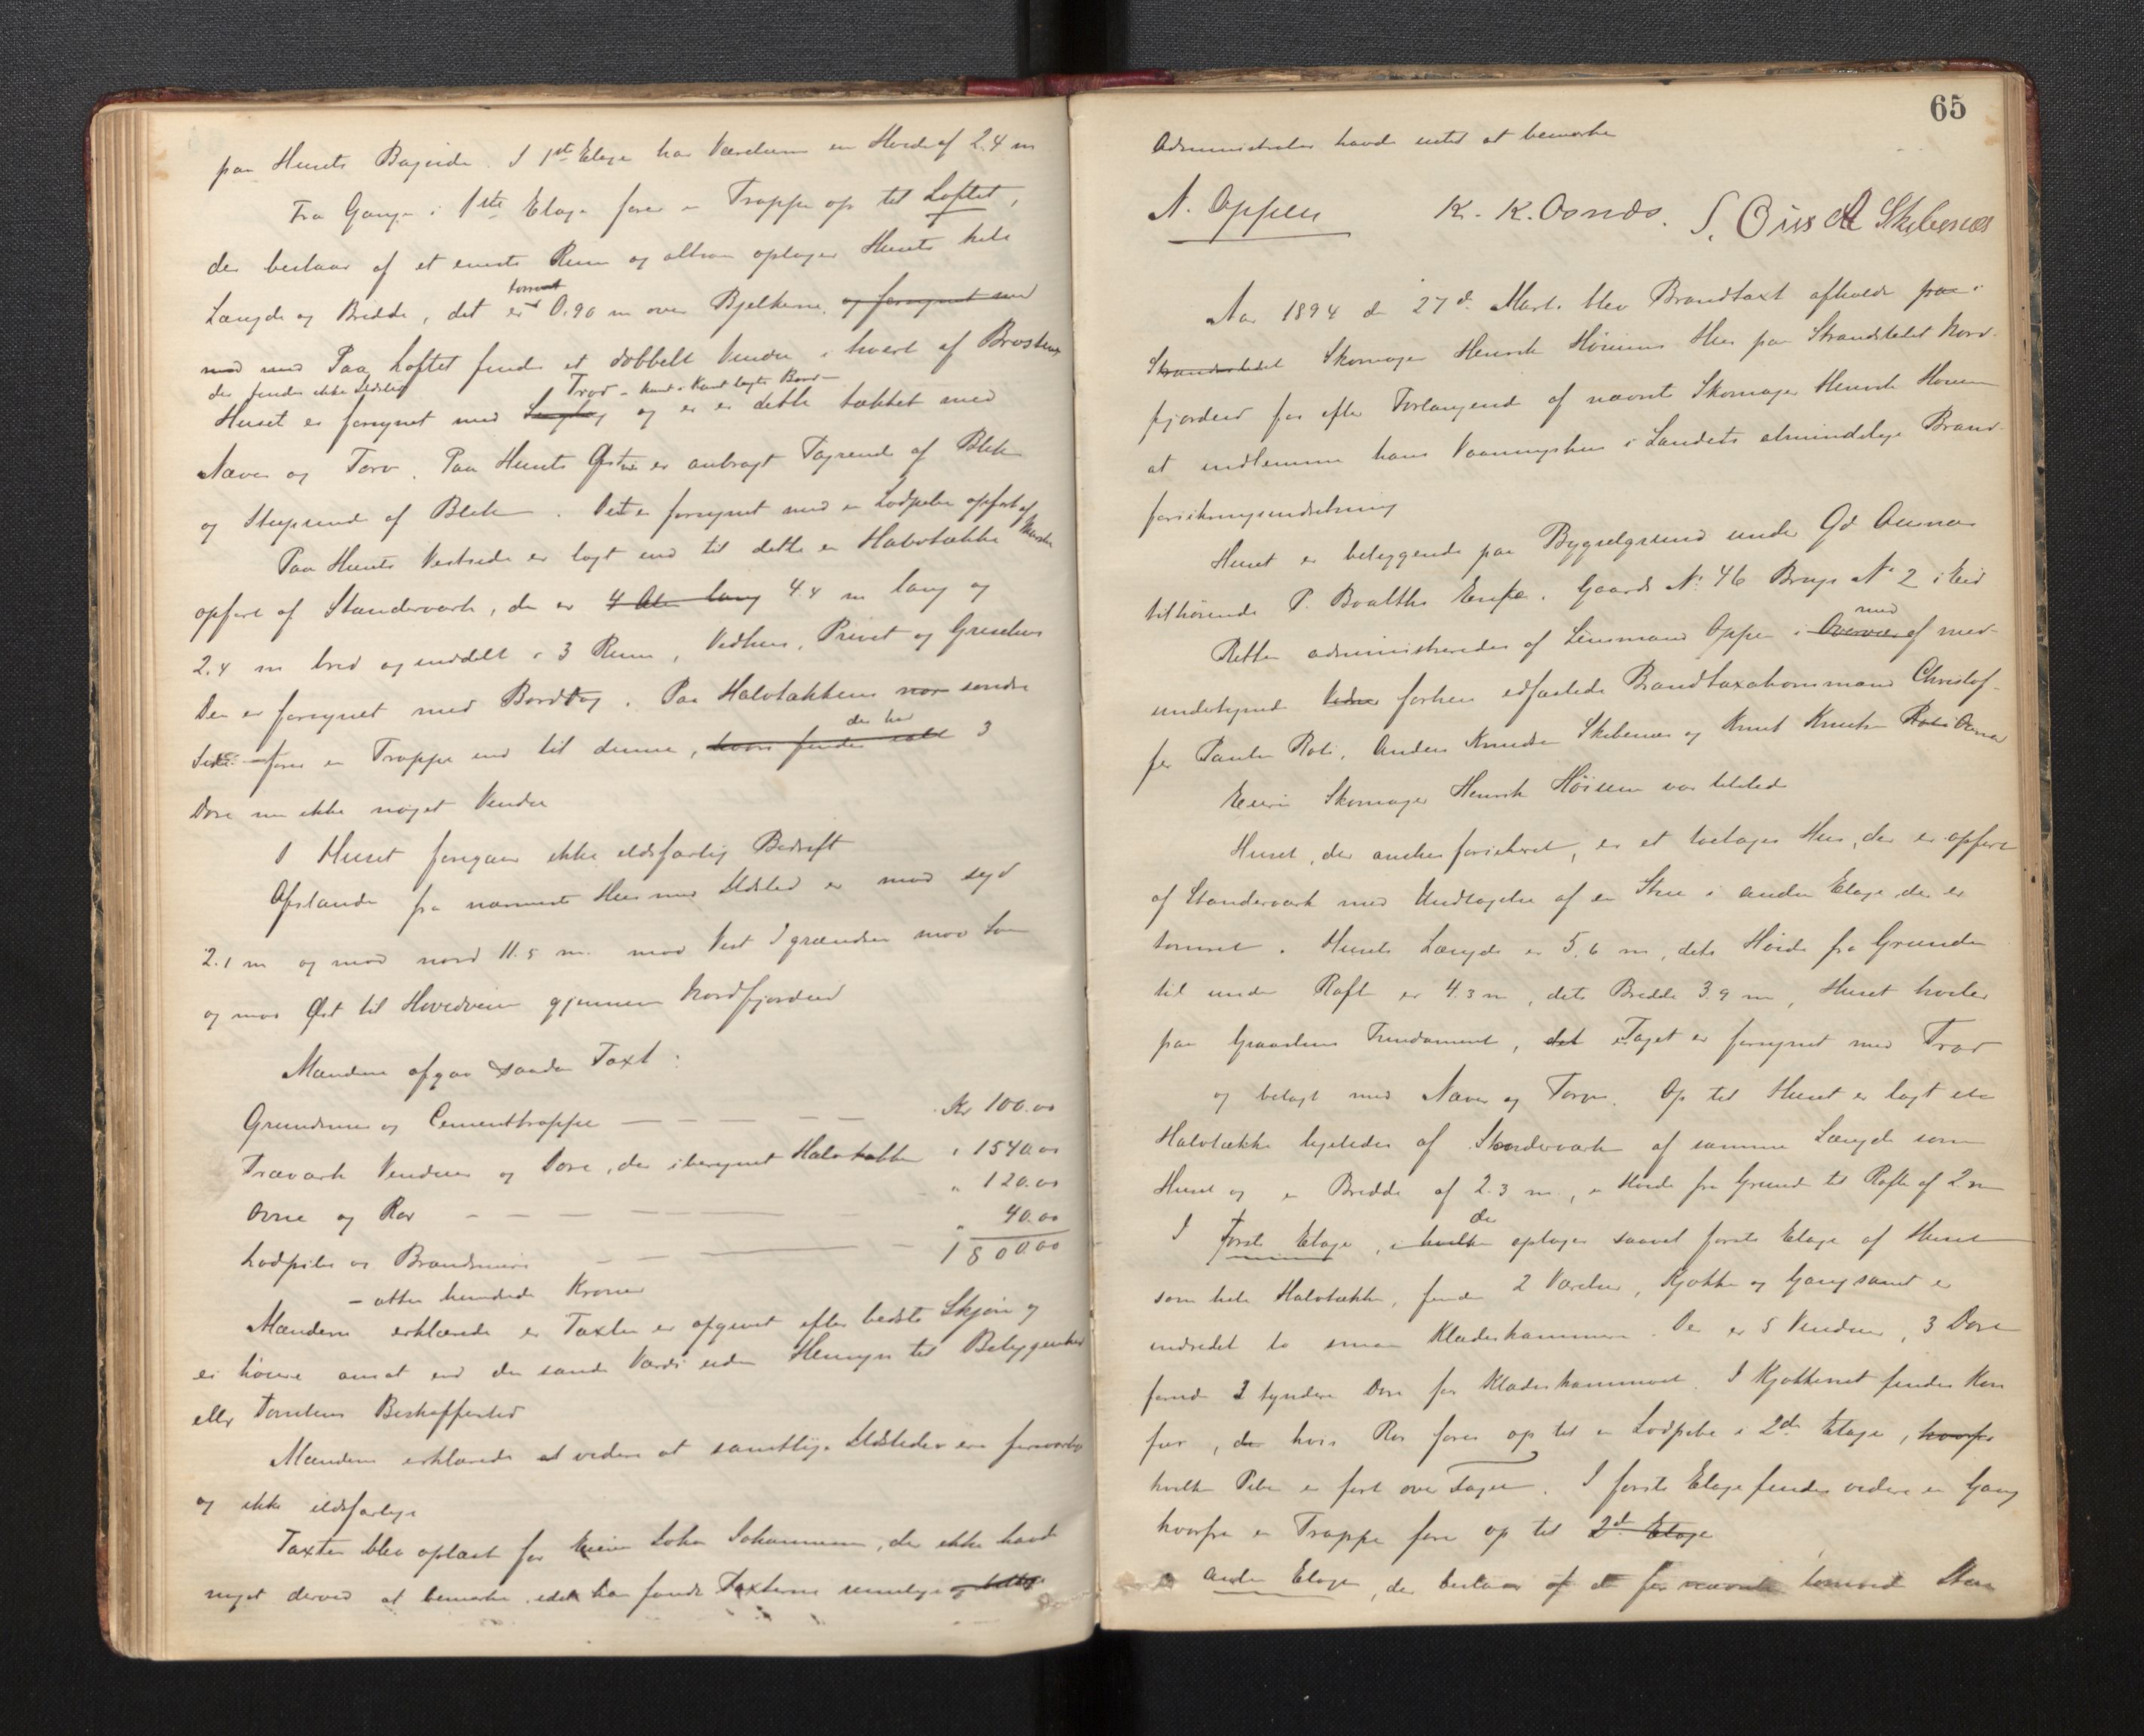 paa Husets Bagside. I 1ste Etage har Værelserne en Høide af 2.4 m
Fra Gangen i 1ste Etage fører en Trappe op til Loftet,
der bestaar af et eneste Rum og altsaa optager Husets hele
Længde og Bredde, det er tømret 0.90 m over Bjelkerne, og forsynet med
Paa Loftet findes et dobbelt Vindu i hvert af Brystene
der findes ikke Ildsted
Huset er forsynet med Trod - Kant i Kant lagte Bord - og er dette tækket med
Næver og Torv. Paa Husets Østside er anbragt Tagrende af Blik
og Steprende af Blik. Det er forsynet med en Lodpibe opført af Mursten
Paa Husets Vestside er lagt ind til dette en Halvtække
opført af Standerværk, der er 4 Alen lang 4.4 m lang og
2.4 m bred og inddelt i 3 Rum, Vedhus, Privet og Grisehus
Den er forsynet med Bordtag. Paa Halvtækkens nor søndre
Side fører en Trappe ind til denne, hvori findes der har 3
Døre men ikke noget Vindu
I Huset foregaar ikke ildsfarlig Bedrift
Afstanden fra nærmeste Hus med Ildsted er mod syd
2.1 m og mod nord 11.5 m. mod Vest
og mod Øst til Hovedveien gjennem Nordfjordeid
Mændene afgav saadan Taxt:
Grundmur og Cementtrappe — — — — Kr 100.00
Træværk Vinduer og Døre, der iberegnet Halvtækken " 1540.00
Ovne og Rør — — — — " 120.00
Lodpibe og Brandmure — — — " 40.00
1800.00
- atten hundrede Kroner
Mændene erklærede at Taxten er afgivet efter bedste Skjøn og
ei høiere ansat end den sande Værdi uden Hensyn til Beliggenhed
eller Tomtens Beskaffenhed
Mændene erklærede videre at samtlige Ildsteder ere forsvarlige
og ikke ildsfarlige
Taxten blev oplæst for Eieren Johannesen, der ikke havde
noget derved at bemærke, idet han fandt Taxterne rimelige
65
Administrator havde intet at bemærke
N. Oppen K. K. Osnes. Skibenes
Aar 1894 den 27de Marts blev Brandtaxt afholdt paa i
Strandstedet Skomager Henrik Høinines Hus paa Strandstedet Nord-
fjordeid for efter Forlangende af nævnte Skomager Henrik
at indlemme hans Vaaningshus i Landets almindelige Brand-
forsikringsindretning
Huset er beliggende paa Bygselgrund under Gd
tilhørende P. Boalths Enke. Gaards No. 46 Brugs No 2 i Eid
Retten administreredes af Lensmand Oppen i Overvær med af med-
undertegnede forhen edfæstede Brandtaxationsmænd Christof-
fer Paulsen Roti, Anders Knudsen Skibenes og Knut Knutsen Osnes
Eieren Skomager Henrik var tilstede
Huset, der ønskes forsikret, er et toetages Hus, der er opført
af Standerværk med Undtagelse af en Stue i anden Etage der er
tømret. Husets Længde er 5.6 m, dets Høide fra Grunden
til under Raftet er 4.3 m, dets Bredde 3.9 m, Huset hviler
paa Graastens Fundament, det Taget er forsynet med Trod
og belagt med Næver og Torv. Op til Huset er lagt en
Halvtække ligeledes af Standerværk af samme Længde som
Huset og en Bredde af 2.3 m., en Høide fra Grund til Raftet af 2 m
I første Etage, i hvilken der optager saavel første Etage af Huset
som hele Halvtækken, findes 2 Værelser, Kjøkken og Gang samt er
indredet to smaa Klædeskammere. Der er 5 Vinduer, 3 Døre
forud 2 tyndere Døre for Klædeskammeret. I Kjøkkenet findes Kom
fur, der hvis Rør fører op til en Lodpibe i 2den Etage, hvorfra
hvilken Pibe er ført over Taget. I første Etage findes videre en Gang
hvorfra en Trappe fører op til 2d Etage
anden Etage, der bestaar af den før nævnte tømrede Stue